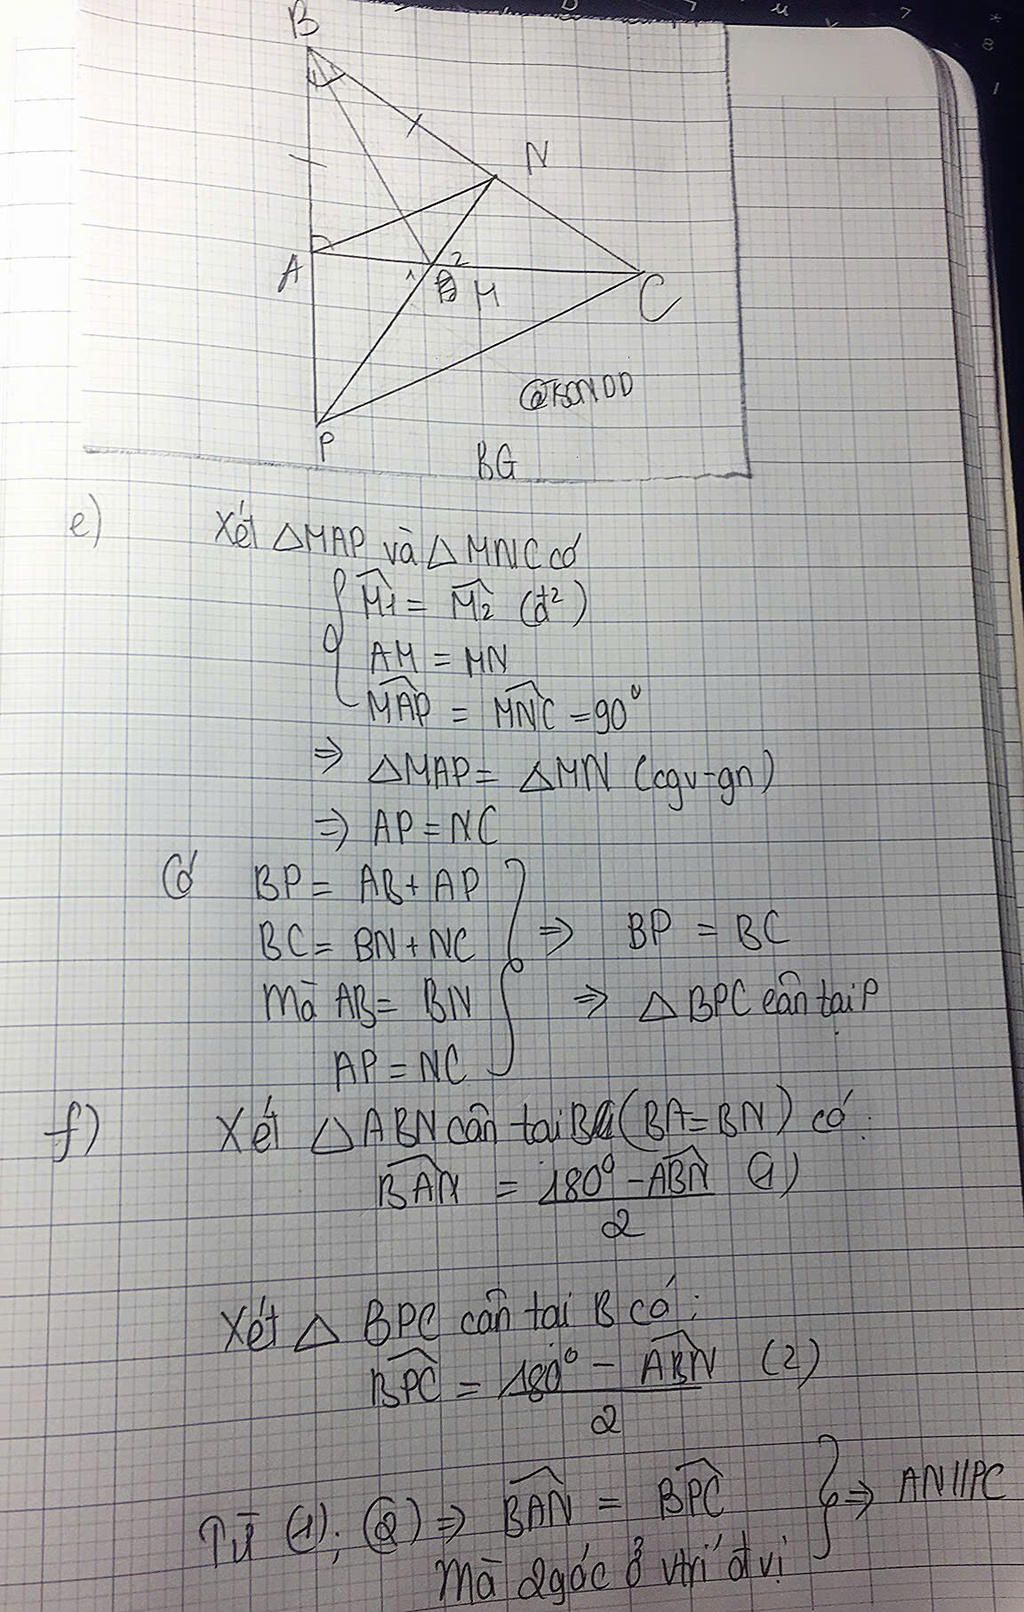 B
N
A
1
2
M
C
@TSONDD
P
BG
e) Xét △MAP và △MNC có
M̂1 = M̂2 (đ²)
AM = MN
MAP = MNC = 90°
⇒ △MAP = △MN (cgv-gn)
⇒ AP = NC
Có BP = AB + AP
BC = BN + NC ⇒ BP = BC
Mà AB = BN ⇒ △BPC cân tại P
AP = NC
f) Xét △ABN cân tại B (BA = BN) có:
BAN = 180° - ABN (1)
2
Xét △ BPC cân tại B có:
BPC = 180° - ABN (2)
2
Từ (1); (2) ⇒ BAN = BPC ⇒ AN//PC
Mà 2 góc ở vtrí đvị